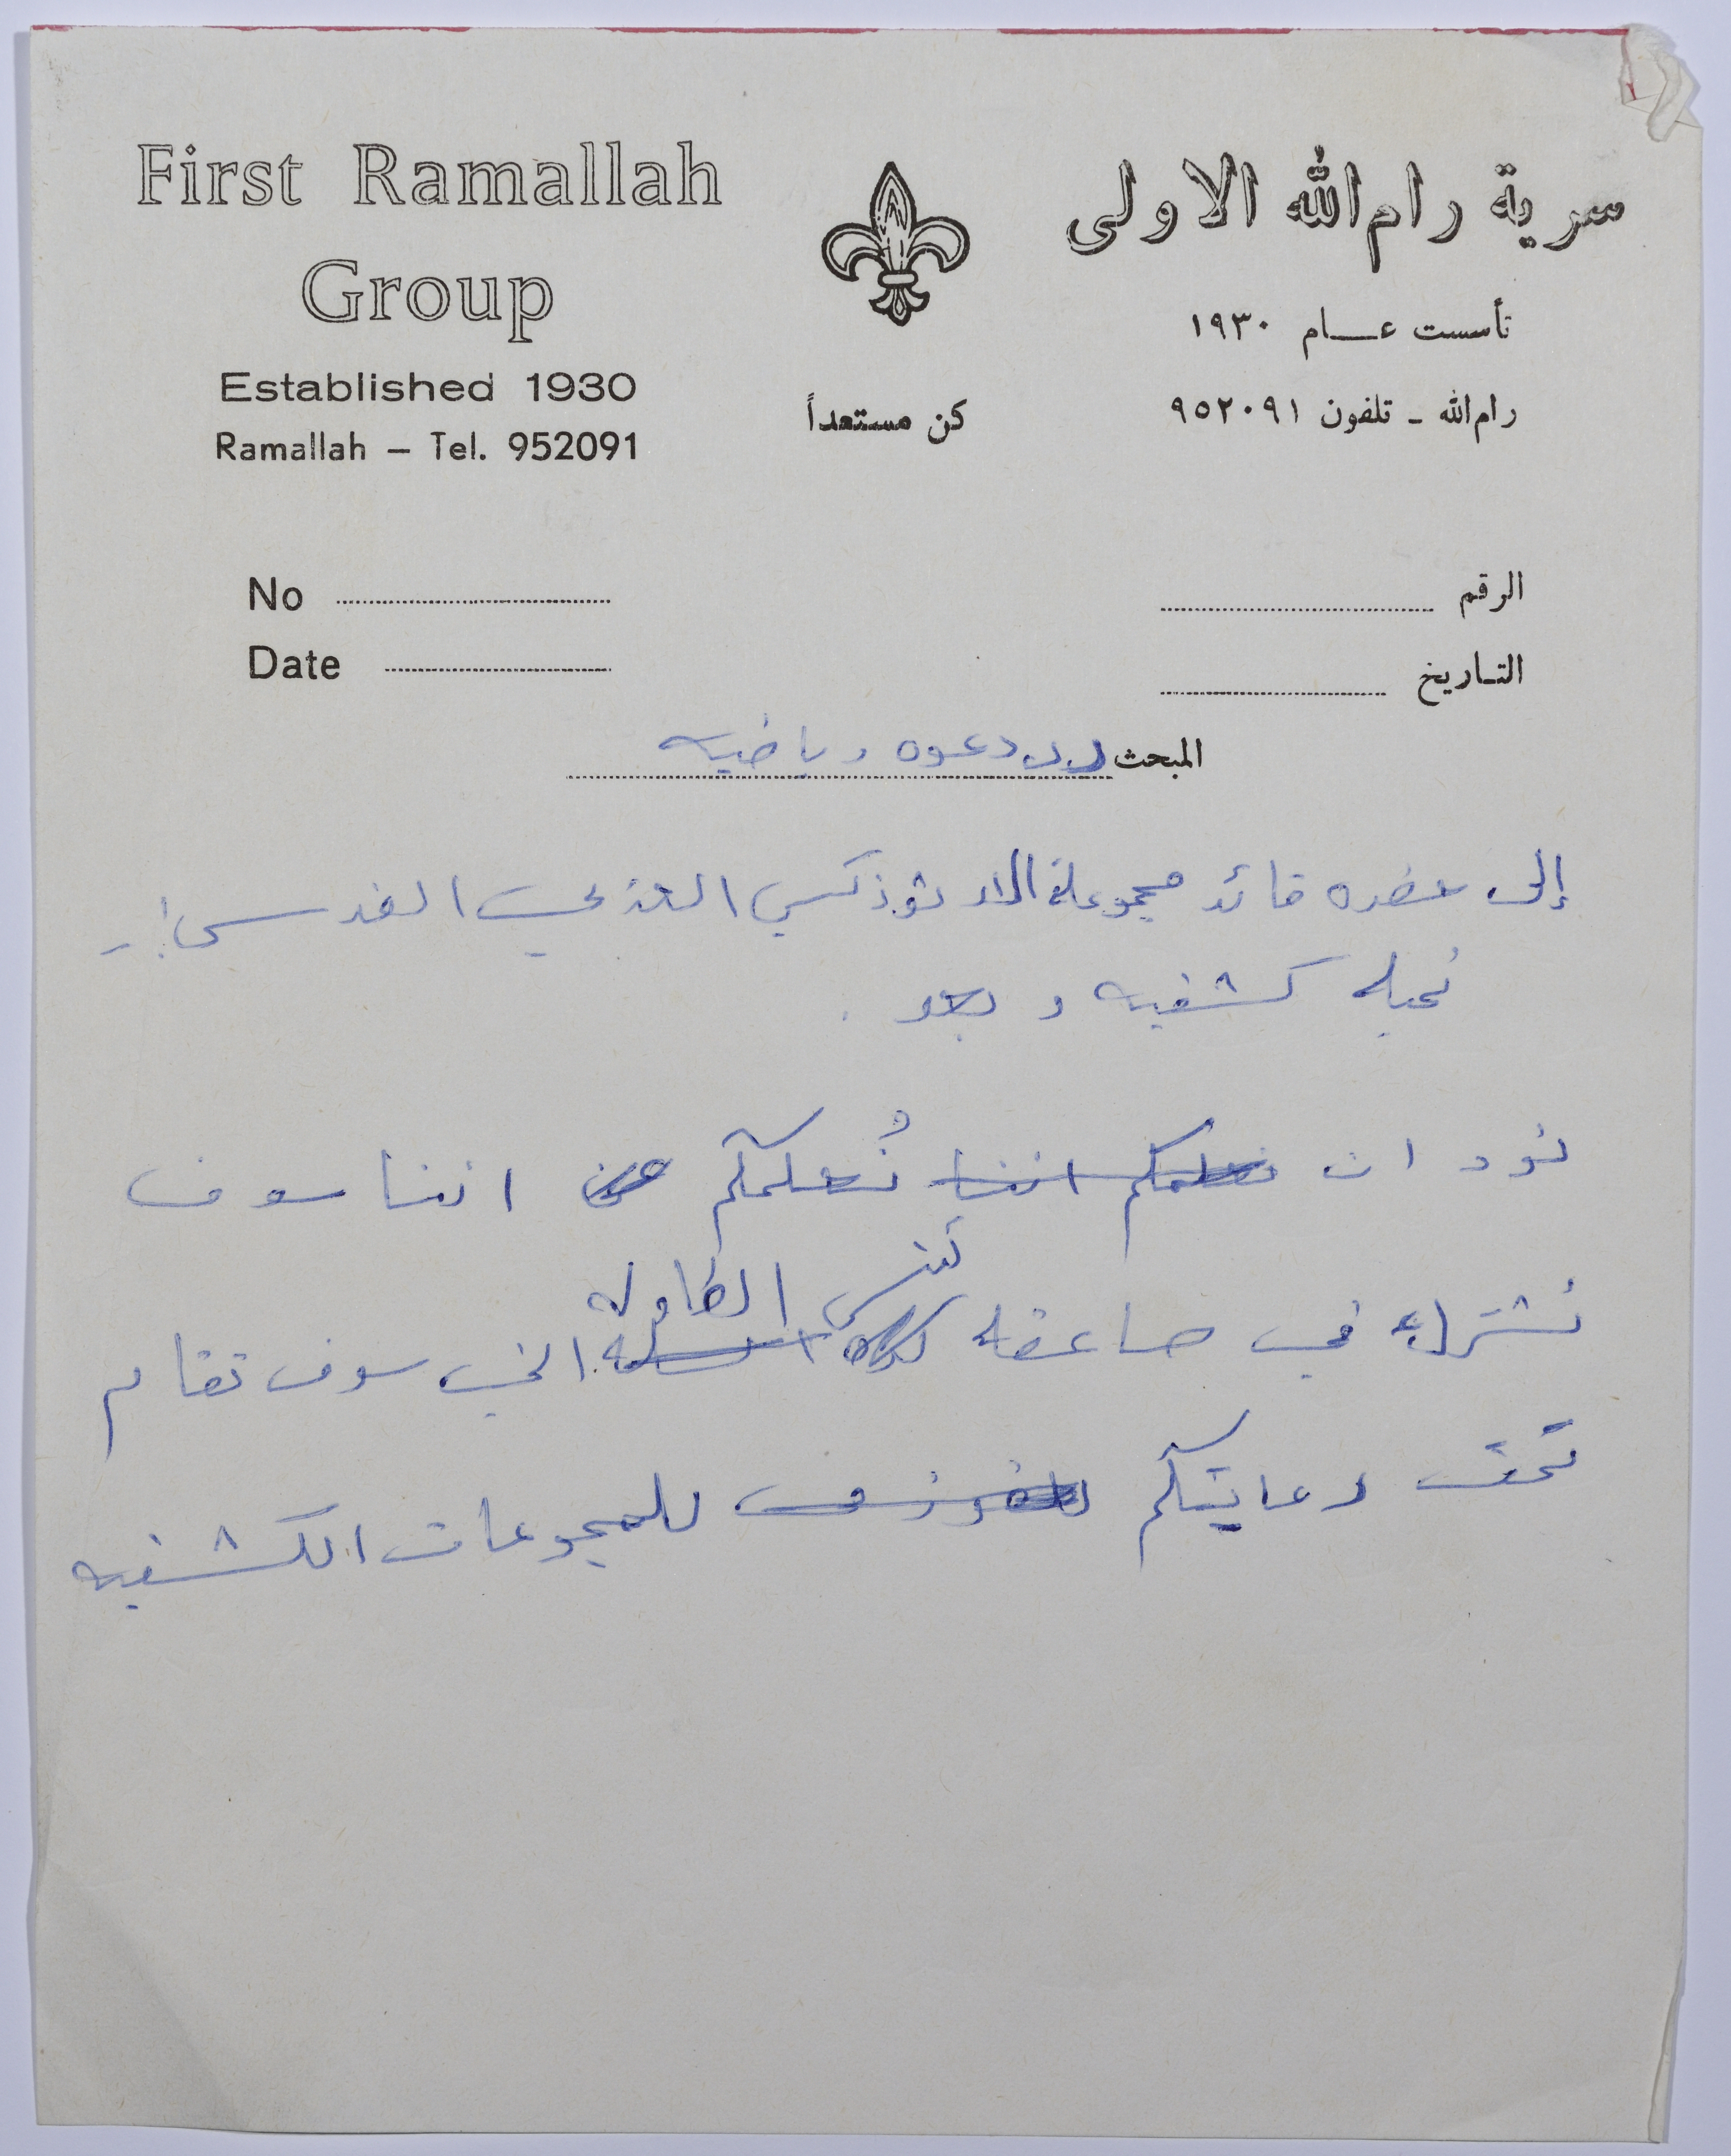 First Ramallah
Group
Established 1930
Ramallah – Tel. 952091
كن مستعداً
سرية رام الله الاولى
تأسست عـــام ١٩٣٠
رام الله ـ تلفون ٩٥٢٠٩١
No
Date
الرقم
التـاريخ
المبحث دعوه رياضيه
إلى حضره قائد مجموعة الار ثوذكسي العربي القدس :ـ
تحيه كشفيه و بعد .
نود ان نعلمكم اننا نُعلمكم عن اننا سوف
تنس الطاوله
نشترك في مسابقه كره السله التي سوف تقام
تحت رعايتكم للمجموعات الكشفيه